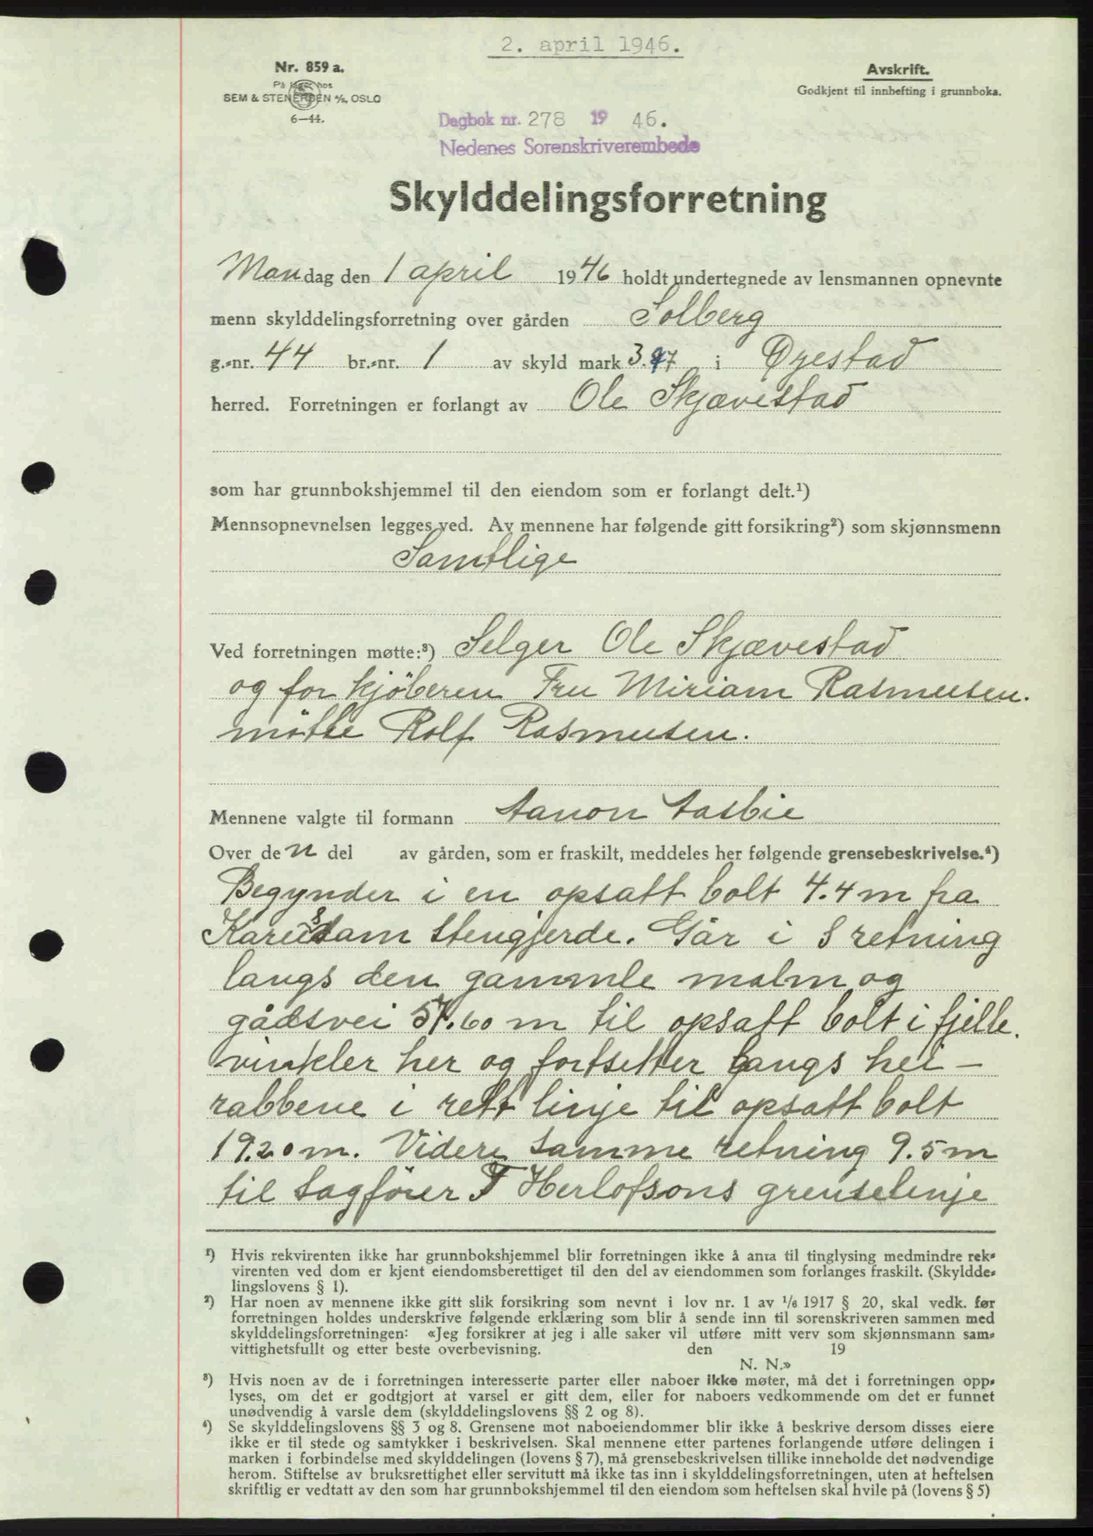 2. april 1946.
Nr. 859 a.
På lager hos
SEM & STENERSEN A/S, OSLO
6—44.
Avskrift.
Godkjent til innhefting i grunnboka.
Dagbok nr. 278 19 46.
Nedenes Sorenskriverembede
Skylddelingsforretning
Mandag den 1 april 1946 holdt undertegnede av lensmannen opnevnte
menn skylddelingsforretning over gården Solberg
g.-nr. 44 br.-nr. 1 av skyld mark 3.97 i Øyestad
herred. Forretningen er forlangt av Ole Skjævestad
som har grunnbokshjemmel til den eiendom som er forlangt delt.¹)
Mennsopnevnelsen legges ved. Av mennene har følgende gitt forsikring²) som skjønnsmenn
Samtlige
Ved forretningen møtte:³) Selger Ole Skjævestad
og for kjöberen Fru Miriam Rasmusen.
møtte Rolf Rasmusen.
Mennene valgte til formann Aanon Aasbie
Over den del av gården, som er fraskilt, meddeles her følgende grensebeskrivelse.⁴)
Begynder i en opsatt bolt 4.4 m fra
stengjerde. Går i S retning
langs den gammle malm og
gådsvei 57.60 m til opsatt bolt i fjelle.
vinkler her og fortsetter langs hei-
rabbene i rett linje til opsatt bolt
19.20 m. Videre samme retning 9.5 m
til sagfører F Herlofsons grenselinje
¹) Hvis rekvirenten ikke har grunnbokshjemmel blir forretningen ikke å anta til tinglysing medmindre rek-
virenten ved dom er kjent eiendomsberettiget til den del av eiendommen som forlanges fraskilt. (Skyldde-
lingslovens § 1).
²) Har noen av mennene ikke gitt slik forsikring som nevnt i lov nr. 1 av ¹/₆ 1917 § 20, skal vedk. før
forretningen holdes underskrive følgende erklæring som blir å sende inn til sorenskriveren sammen med
skylddelingsforretningen: «Jeg forsikrer at jeg i alle saker vil utføre mitt verv som skjønnsmann sam-
vittighetsfullt og etter beste overbevisning. den 19
N. N.»
³) Hvis noen av de i forretningen interesserte parter eller naboer ikke møter, må det i forretningen opp-
lyses, om det er godtgjort at varsel er gitt dem, eller for naboers vedkommende om det er funnet
unødvendig å varsle dem (skylddelingslovens §§ 2 og 8).
⁴) Se skylddelingslovens §§ 3 og 8. Grensene mot naboeiendommer blir ikke å beskrive dersom disses eiere
ikke er til stede og samtykker i beskrivelsen. Skal mennene etter partenes forlangende utføre delingen i
marken i forbindelse med skylddelingen (lovens § 7), må grensebeskrivelsen tillike inneholde det nødvendige
herom. Stiftelse av bruksrettighet eller servitutt må ikke tas inn i skylddelingsforretningen, uten at heftelsen
skriftlig er vedtatt av den som har grunnbokshjemmel til den eiendom som heftelsen skal hvile på (lovens § 5)